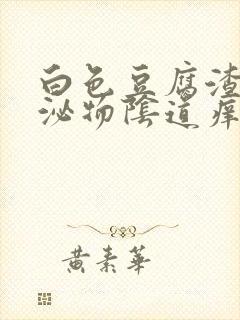 白色豆腐渣
泌物陰道痒
黄素華